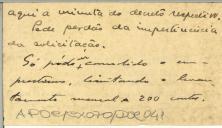 aqui a minuta do decreto respectivo.
Pede perdão da impertinencia
da solicitação.
Só pode consolido o em-
prestimo, limitando o levan-
tamento mensal a 200 contos.